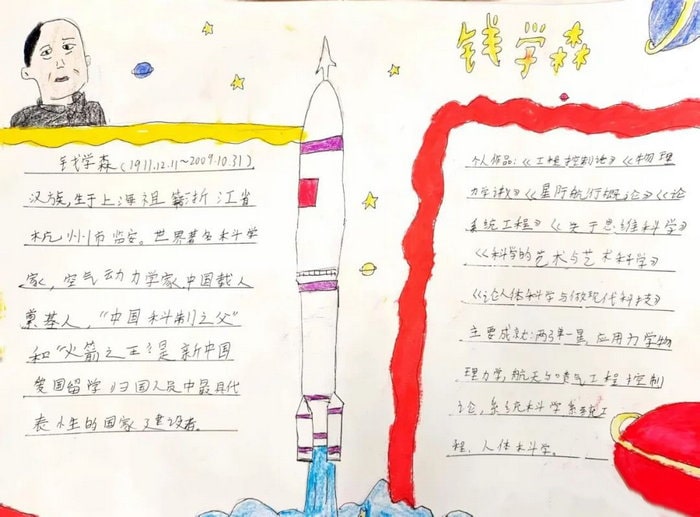 钱学森
钱学森(1911.12.11~2009.10.31)
汉族,生于上海祖籍浙江省
杭州市临安。世界著名科学
家,空气动力学家,中国载人
奠基人,“中国科制之父”
和“火箭之王”是新中国
爱国留学归国人员中最具代
表性的国家建设者。
个人作品:《工程控制论》《物理
力学讲义》《星际航行概论》《论
系统工程》《关于思维科学》
《科学的艺术与艺术科学》
《论人体科学与做现代科技》
主要成就:两弹一星,应用力学物
理力学,航天与喷气工程控制
论,系统科学系统工
程、人体科学。